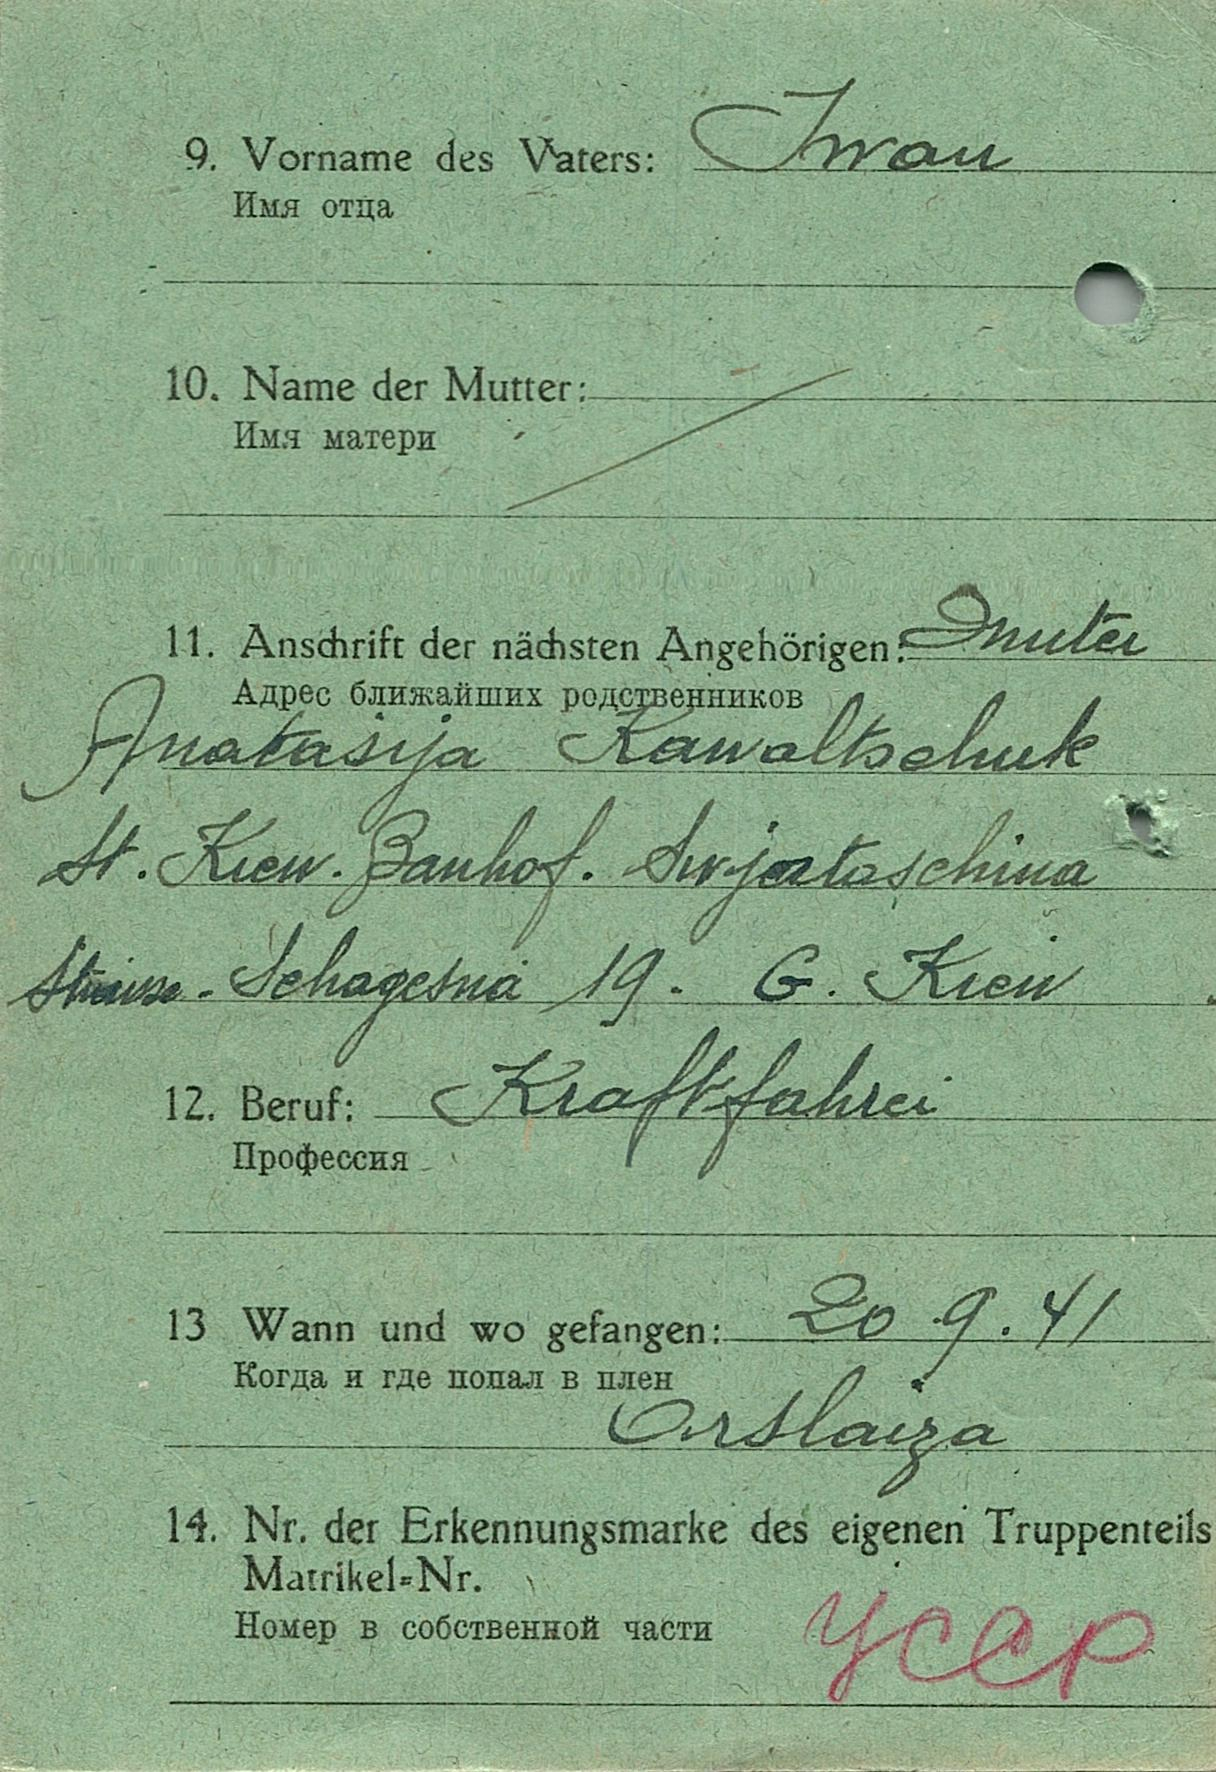 9. Vorname des Vaters: Iwan
Имя отца
10. Name der Mutter:
Имя матери
11. Anschrift der nächsten Angehörigen: Muter
Адрес ближайших родственников
Anatasija Kawaltschuk
St. Kiew. Banhof. Swjataschina
19. G. Kiew
12. Beruf: Kraftfahrer
Профессия
13 Wann und wo gefangen: 20.9.41
Когда и где попал в плен
14. Nr. der Erkennungsmarke des eigenen Truppenteils
Matrikel-Nr.
Номер в собственной части
УССР